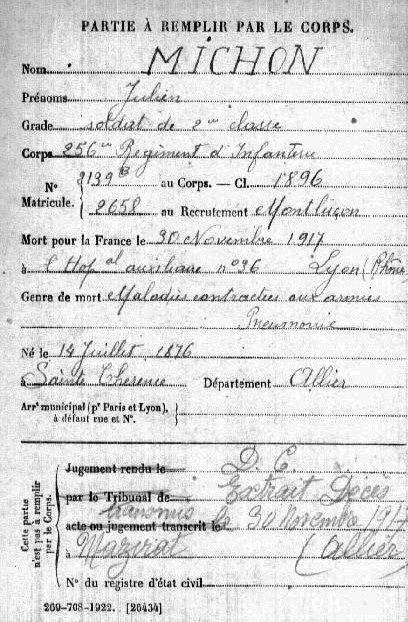 PARTIE À REMPLIR PAR LE CORPS.
Nom MICHON
Prénoms Julien
Grade soldat de 2me classe
Corps 256me Régiment d'Infanterie
N° Matricule. 
au Corps. — Cl. 1896
2658 au Recrutement Montluçon
Mort pour la France le 30 Novembre 1917
à l'Hop al auxiliaire n°36 Lyon (Rhône
Genre de mort Maladies contractées aux armées
Pneumonie
Né le 14 Juillet 1876
à Sainte Therence Département Allier
Arrt municipal (pr Paris et Lyon),
à défaut rue et N°.
Cette partie
n'est pas à remplir
par le Corps.
Jugement rendu le D. C.
par le Tribunal de Extrait Décès
transmis
acte ou jugement transcrit le 30 Novembre 1917
à Mazirat (Allier)
N° du registre d'état civil
269-708-1922. [26434]